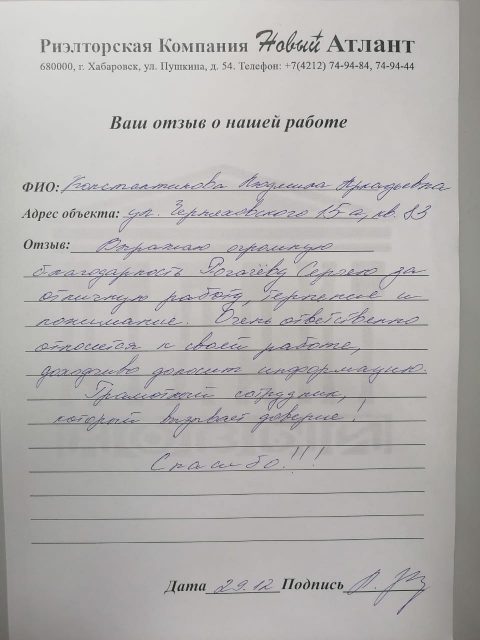 Риэлторская Компания Новый Атлант
680000, г. Хабаровск, ул. Пушкина, д. 54. Телефон: +7(4212) 74-94-84, 74-94-44
Ваш отзыв о нашей работе
ФИО: Константинова Людмила Аркадьевна
Адрес объекта: ул. Черняховского 15-а, кв. 83
Отзыв: Выражаю огромную
благодарность Рогачёву Сергею за
отличную работу, терпение и
понимание. Очень ответственно
относится к своей работе,
доходчиво доносит информацию.
Грамотный сотрудник,
который вызывает доверие!
Спасибо!!!
Дата 29.12 Подпись